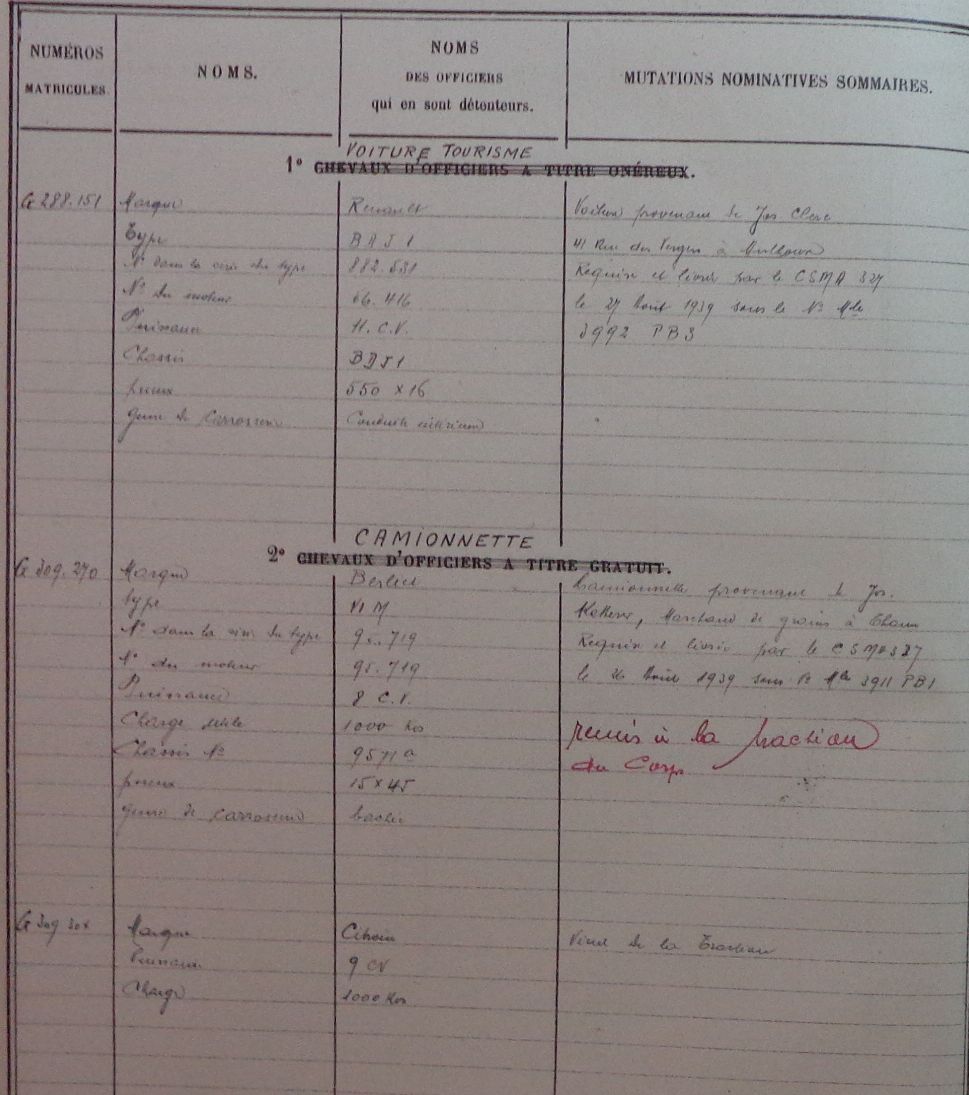 NUMÉROS
MATRICULES.
NOMS.
NOMS
DES OFFICIERS
qui en sont détenteurs.
MUTATIONS NOMINATIVES SOMMAIRES.
VOITURE TOURISME
1° CHEVAUX D'OFFICIERS A TITRE ONÉREUX.
288.151 Marque Renault Voiture provenant de Jos. Clerc
Type 41 Rue des à Mulhouse
N° dans la série du type 882.531 Requise et livrée par le CSMA 327
N° du moteur 66.416 le 27 Août 1939 sous le N° Mle
Puissance 11. C.V. 3992 PB3
Chassis
pneux 550 x 16
genre de Carrosserie Conduite intérieure
CAMIONNETTE
2° CHEVAUX D'OFFICIERS A TITRE GRATUIT.
309.270 Marque Berliet Camionnette provenant de Jos.
type VIM Marchand de grains à Thann
N° dans la série du type 95.719 Requise et livrée par le 327
N° du moteur 95.719 le 26 Août 1939 sous le Mle 3911 PB1
Puissance 8 C.V.
Charge utile 1000 Kos
Chassis N°
remis à la fraction
du Corps
pneux 15x45
genre de Carrosserie bachée
Marque Citroën Vient de la
Puissance 9 CV
Charge 1000 Kos